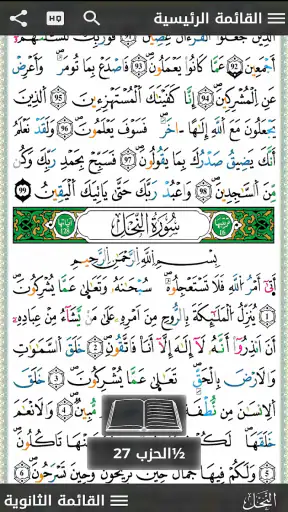 القائمة الرئيسية HQ
الَّذِينَ جَعَلُوا الْقُرْءَانَ عِضِينَ 91 فَوَرَبِّكَ لَنَسْـَٔلَنَّهُمْ
أَجْمَعِينَ 92 عَمَّا كَانُوا يَعْمَلُونَ 93 فَاصْدَعْ بِمَا تُؤْمَرُ وَأَعْرِضْ
عَنِ الْمُشْرِكِينَ 94 إِنَّا كَفَيْنَٰكَ الْمُسْتَهْزِءِينَ 95 الَّذِينَ
يَجْعَلُونَ مَعَ اللَّهِ إِلَٰهًا ءَاخَرَ فَسَوْفَ يَعْلَمُونَ 96 وَلَقَدْ نَعْلَمُ
أَنَّكَ يَضِيقُ صَدْرُكَ بِمَا يَقُولُونَ 97 فَسَبِّحْ بِحَمْدِ رَبِّكَ وَكُن
مِّنَ السَّٰجِدِينَ 98 وَاعْبُدْ رَبَّكَ حَتَّىٰ يَأْتِيَكَ الْيَقِينُ 99
سُورَةُ النَّحْلِ
بِسْمِ اللَّهِ الرَّحْمَٰنِ الرَّحِيمِ
أَتَىٰ أَمْرُ اللَّهِ فَلَا تَسْتَعْجِلُوهُ سُبْحَٰنَهُ وَتَعَٰلَىٰ عَمَّا يُشْرِكُونَ
1 يُنَزِّلُ الْمَلَٰٓئِكَةَ بِالرُّوحِ مِنْ أَمْرِهِ عَلَىٰ مَن يَشَآءُ مِنْ عِبَادِهِ
أَنْ أَنذِرُوا أَنَّهُ لَآ إِلَٰهَ إِلَّآ أَنَا فَاتَّقُونِ 2 خَلَقَ السَّمَٰوَٰتِ
وَالْأَرْضَ بِالْحَقِّ تَعَٰلَىٰ عَمَّا يُشْرِكُونَ 3 خَلَقَ
الْإِنسَٰنَ مِن نُّطْفَةٍ مُّبِينٌ 4 وَالْأَنْعَٰمَ
خَلَقَهَا لَكُمْ تَأْكُلُونَ
5 وَلَكُمْ فِيهَا جَمَالٌ حِينَ تُرِيحُونَ وَحِينَ تَسْرَحُونَ 6
½الحزب 27
النحل القائمة الثانوية